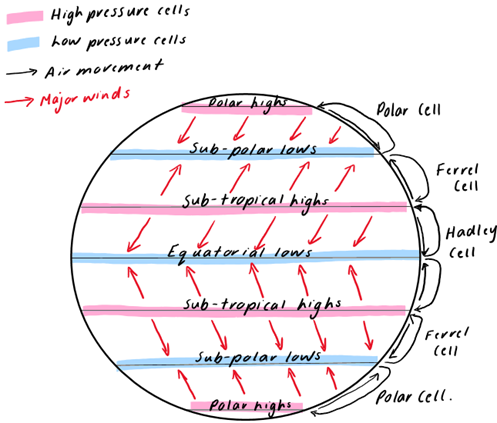 High pressure cells
Low pressure cells
Air movement
Major winds
Polar highs
Polar Cell
Sub-polar lows
Ferrel
Cell
Sub-tropical highs
Hadley
Cell
Equatorial lows
Sub-tropical highs
Ferrel
Cell
Sub-polar lows
Polar Cell.
Polar highs